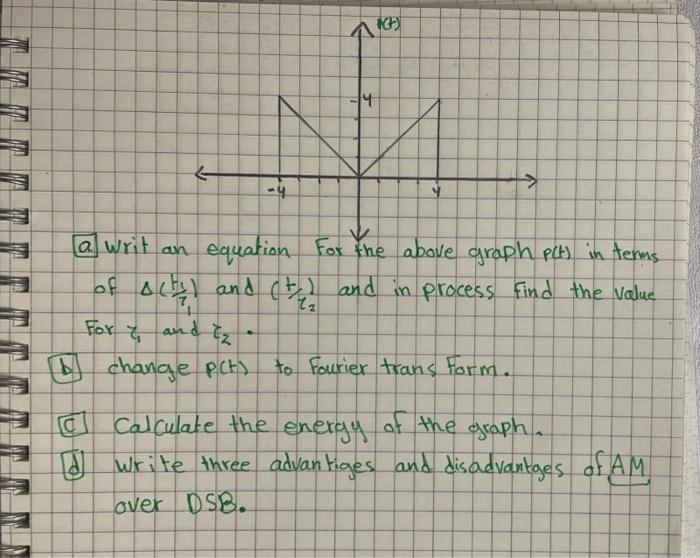 p(t)
4
-4
4
a Writ an equation For the above graph p(t) in terms
of Δ(t/τ₁) and (t/τ₂) and in process find the value
For τ₁ and τ₂ .
b change p(t) to Fourier trans Form.
C Calculate the energy of the graph.
d Write three advantiges and disadvantages of AM
over DSB.